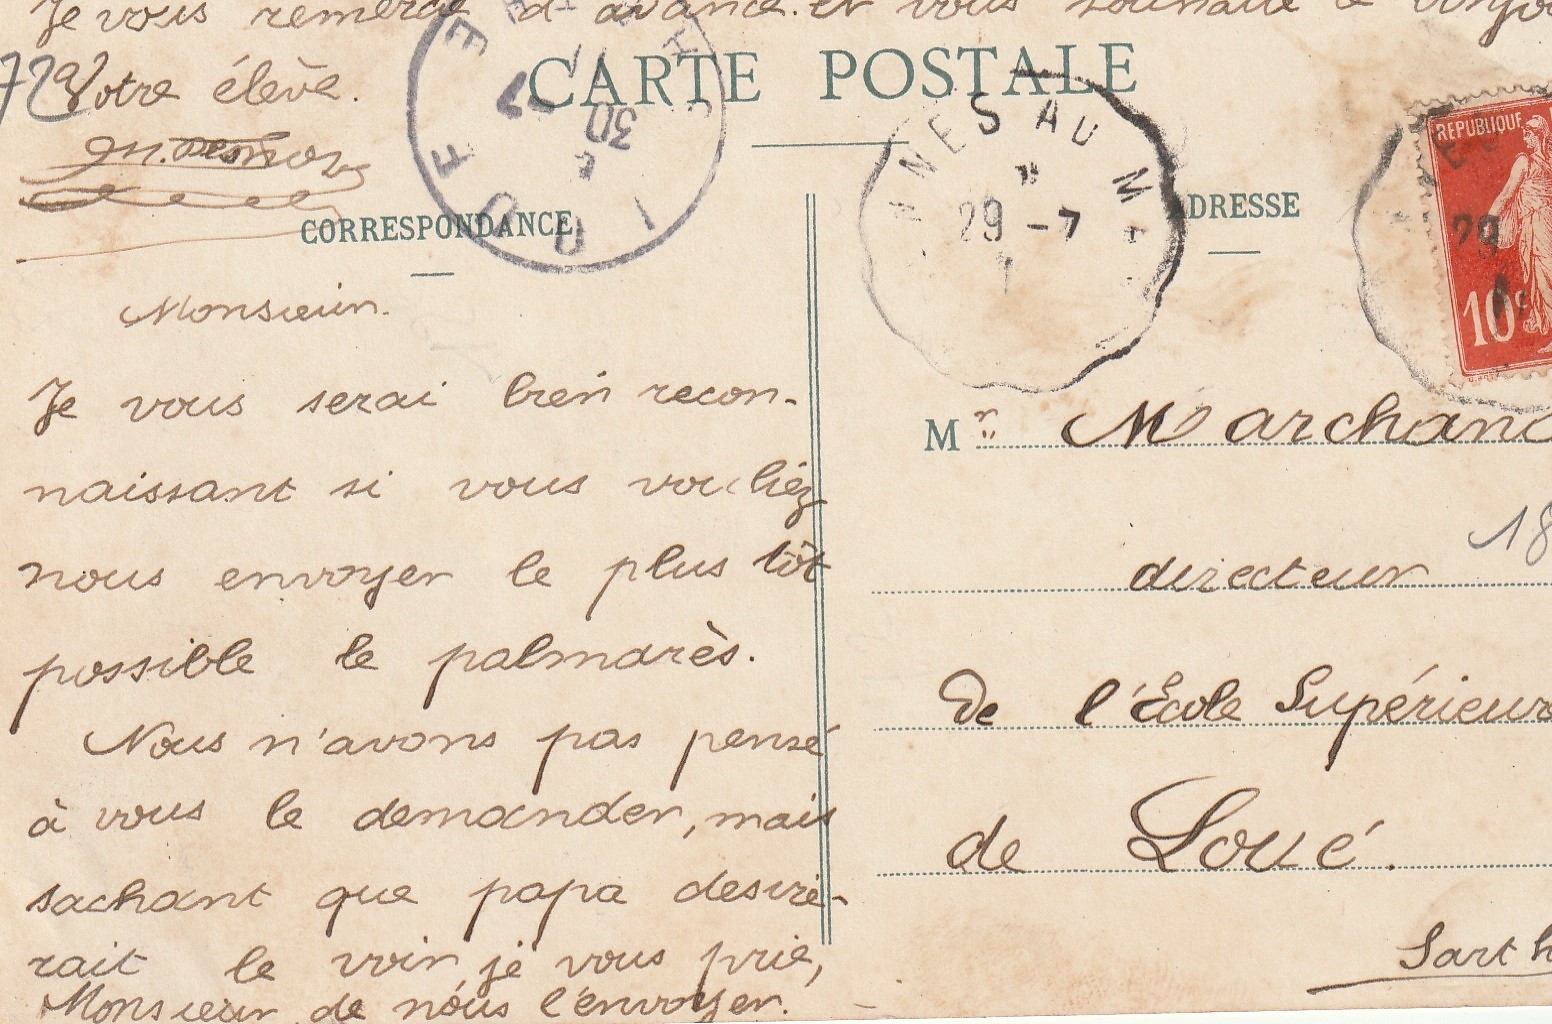 Je vous remercie d'avance et vous souhaite le
Votre élève.
CARTE POSTALE
CORRESPONDANCE
ADRESSE
NNES AU M
29 -7
30
LOUÉ
REPUBLIQUE
29
10c
Monsieur.
Je vous serai bien recon-
naissant si vous vouliéz
nous envoyer le plus tôt
possible le palmarès.
Nous n'avons pas pensé
à vous le demander, mais
sachant que papa desire-
rait le voir je vous prie,
Monsieur de nous l'envoyer.
Mr Marchand
18
directeur
De l'École Supérieure
de Loué.
Sarth